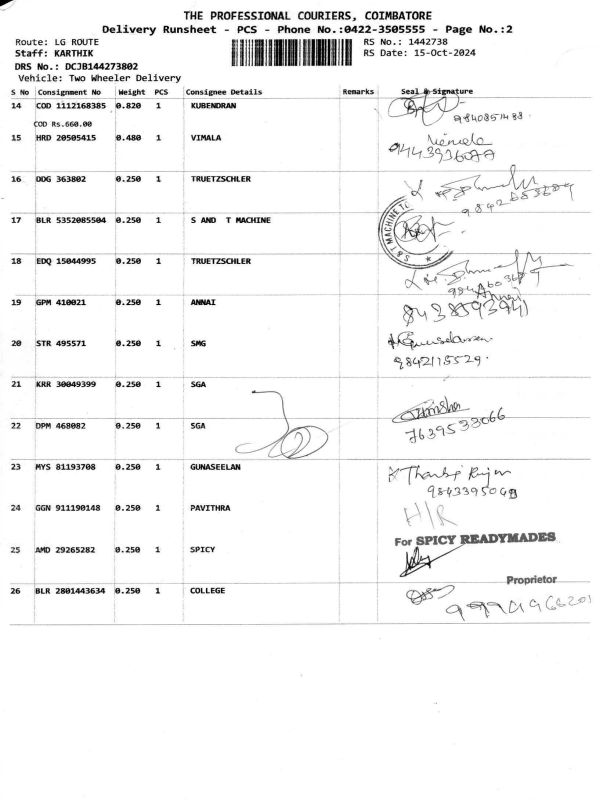 THE PROFESSIONAL COURIERS, COIMBATORE
Delivery Runsheet - PCS - Phone No.:0422-3505555 - Page No.:2
Route: LG ROUTE RS No.: 1442738
Staff: KARTHIK RS Date: 15-Oct-2024
DRS No.: DCJB144273802
Vehicle: Two Wheeler Delivery
S No Consignment No Weight PCS Consignee Details Remarks Seal & Signature
14 COD 1112168385 0.820 1 KUBENDRAN
COD Rs.660.00 9840851488
15 HRD 20505415 0.480 1 VIMALA
16 DDG 363802 0.250 1 TRUETZSCHLER
17 BLR 5352085504 0.250 1 S AND T MACHINE
S & T MACHINE
18 EDQ 15044995 0.250 1 TRUETZSCHLER
19 GPM 410021 0.250 1 ANNAI
20 STR 495571 0.250 1 SMG
9842115529.
21 KRR 30049399 0.250 1 SGA
22 DPM 468082 0.250 1 SGA
7639533066
23 MYS 81193708 0.250 1 GUNASEELAN
24 GGN 911190148 0.250 1 PAVITHRA
H/R
25 AMD 29265282 0.250 1 SPICY
For SPICY READYMADES
Proprietor
26 BLR 2801443634 0.250 1 COLLEGE